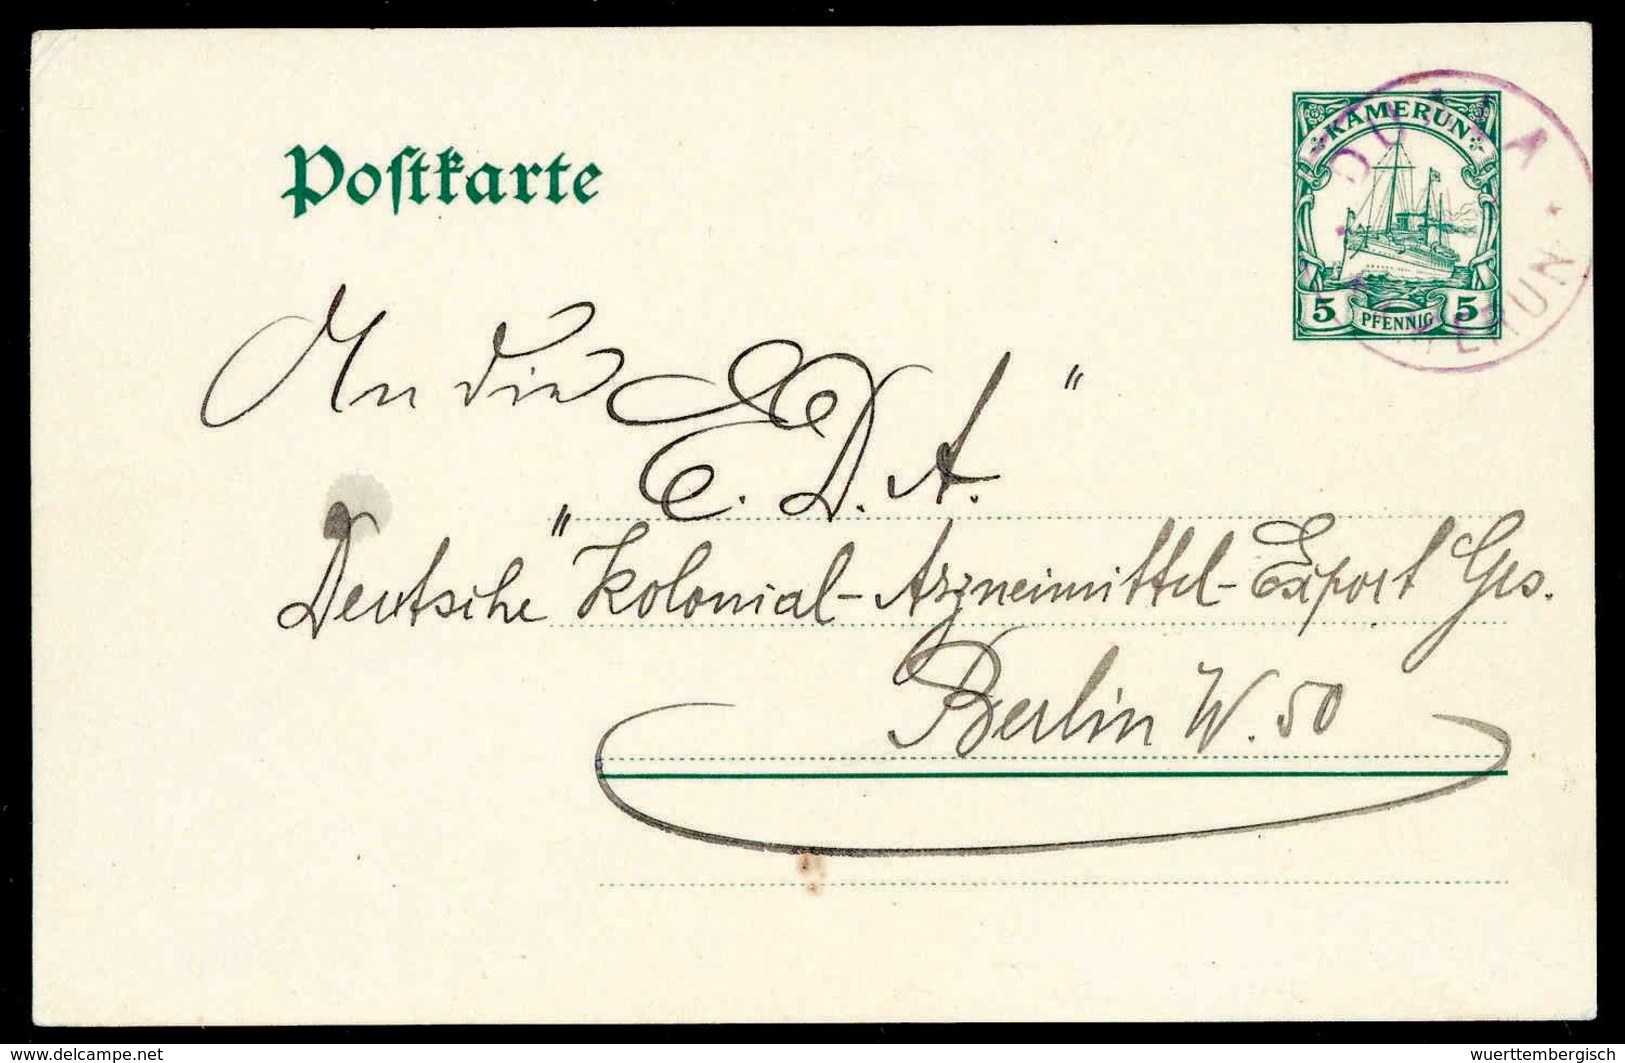 Postkarte
KAMERUN
5 PFENNIG 5
KAMERUN
An die
"E.D.A."
Deutsche Kolonial-Arzneimittel-Export Ges.
Berlin W. 50
www.delcampe.net
wuerttembergisch